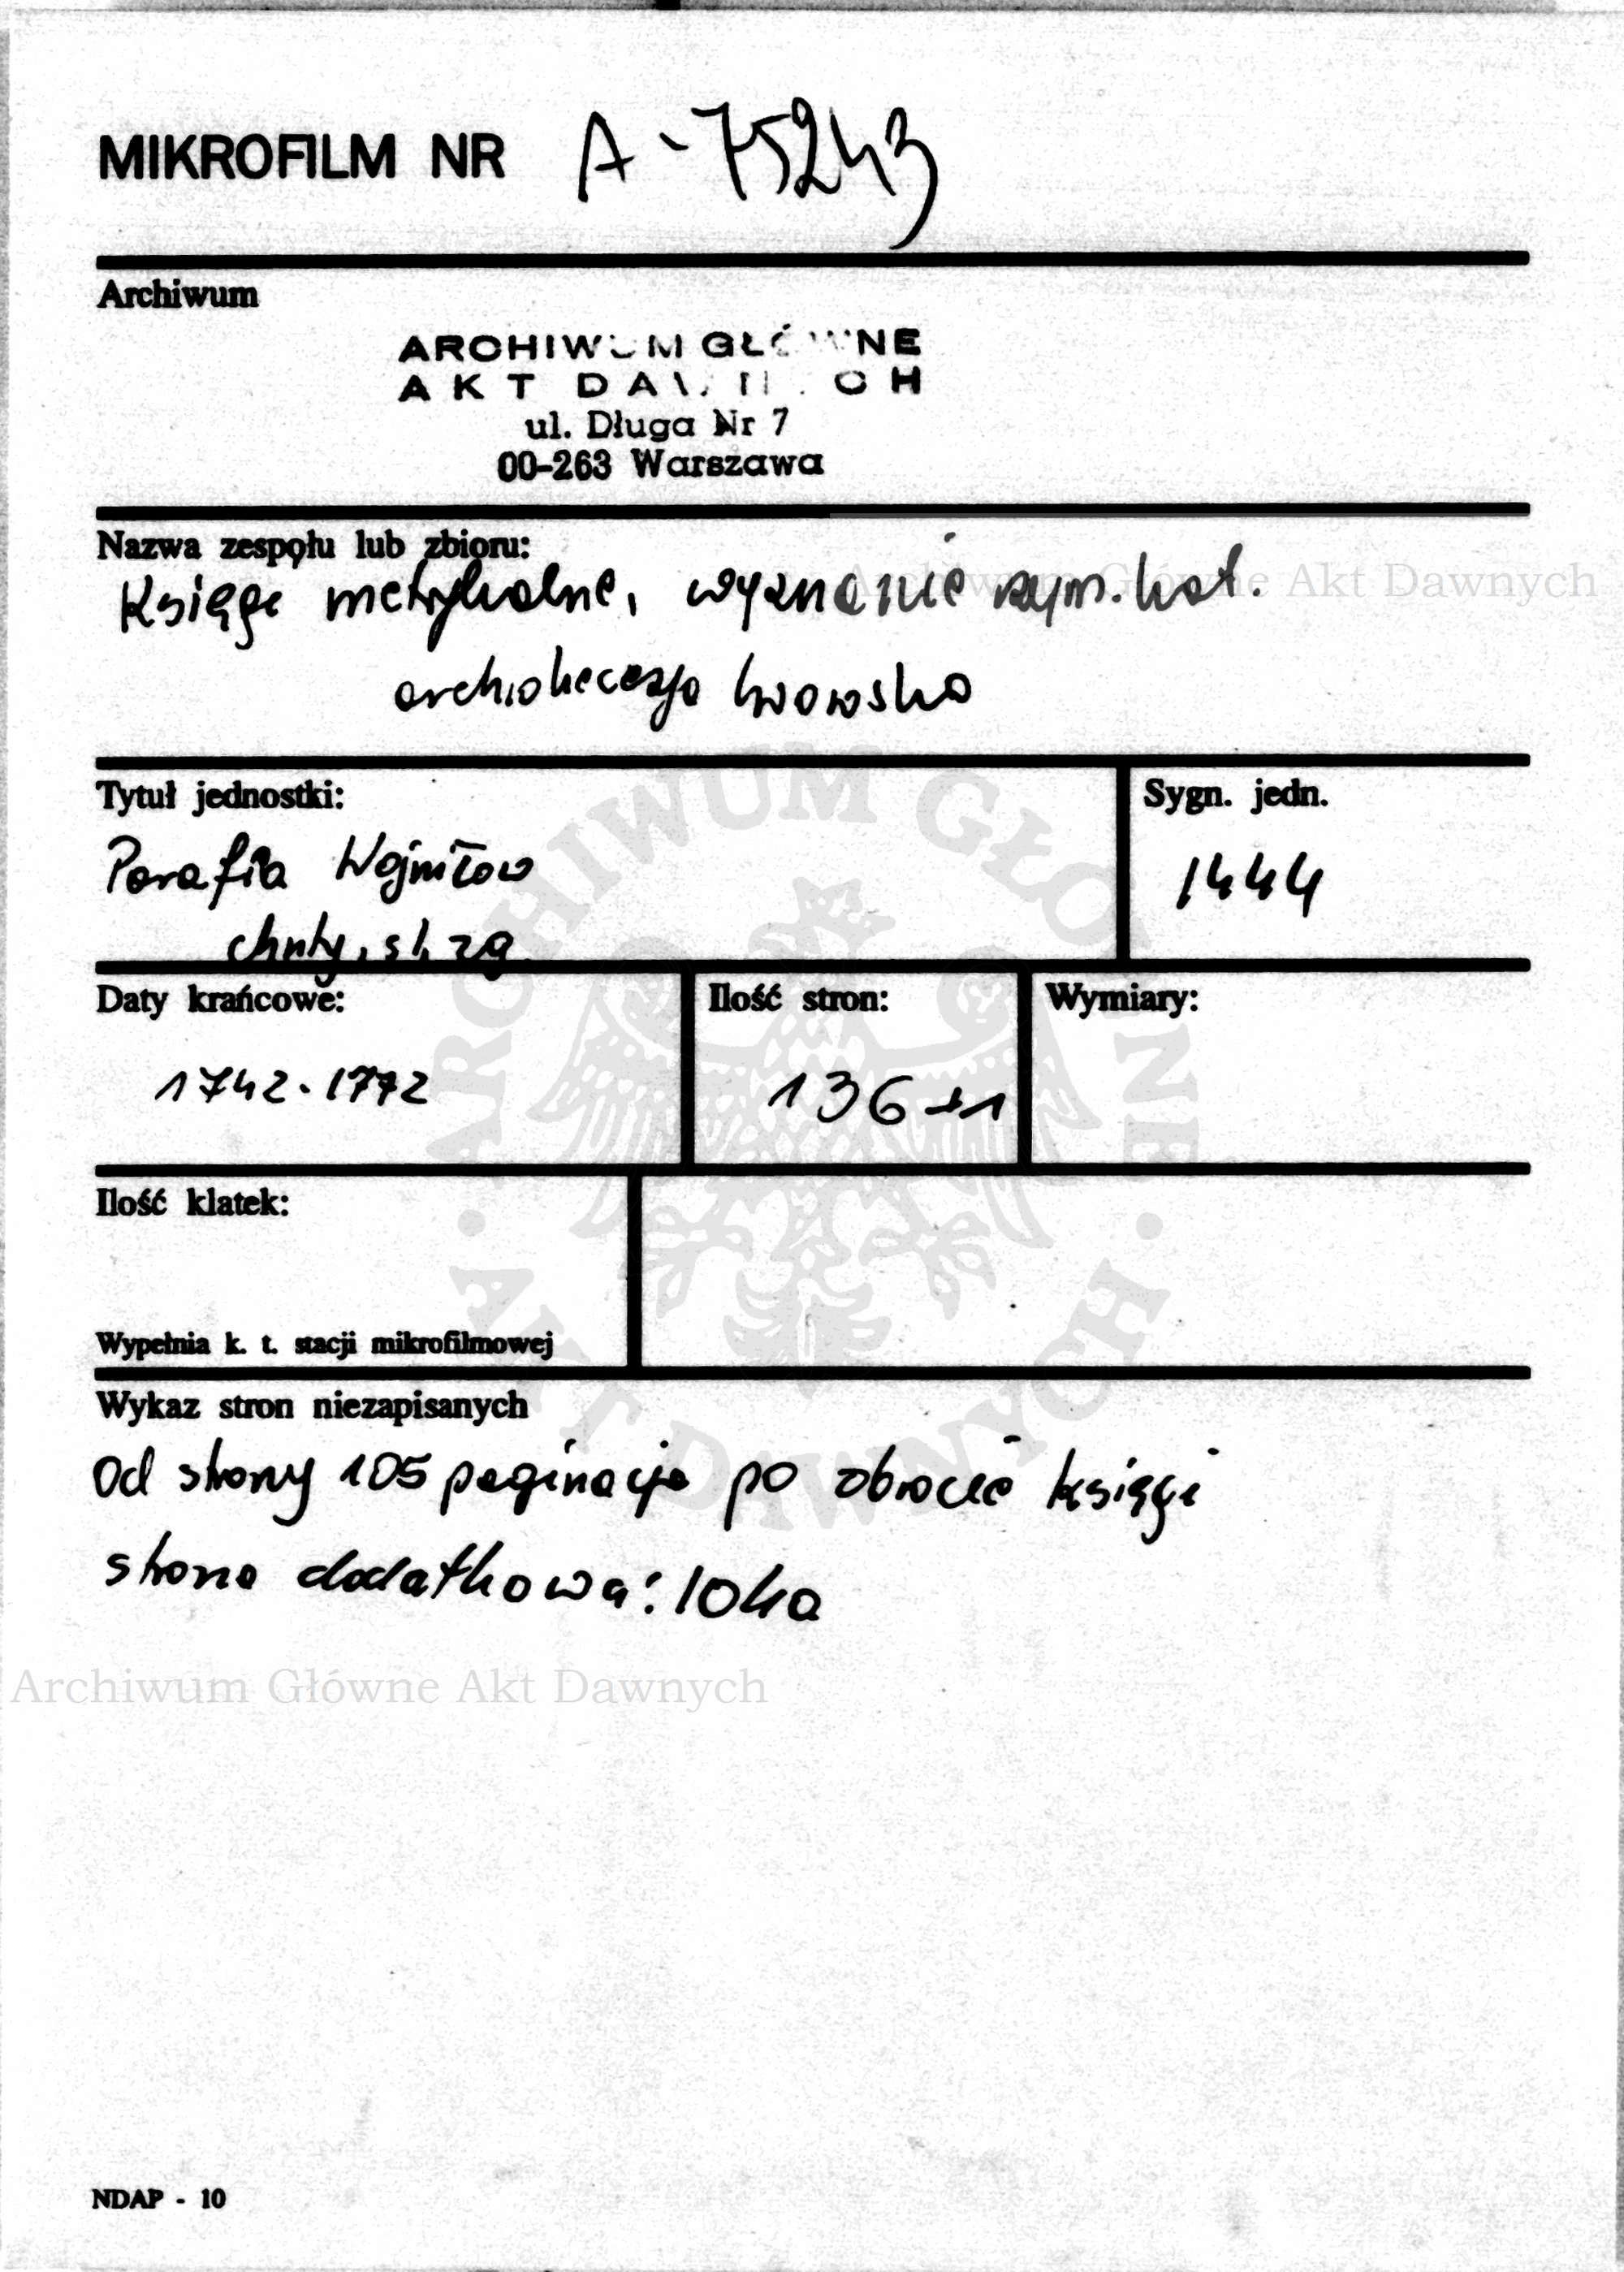 MIKROFILM NR A-75243
Archiwum
ARCHIWUM GŁÓWNE
AKT DAWNYCH
ul. Długa Nr 7
00-263 Warszawa
Nazwa zespołu lub zbioru:
Archiwum Główne Akt Dawnych
Księgi metrykalne, wyznanie rzym. kat.
archidiecezja lwowska
Tytuł jednostki:
Sygn. jedn.
Parafia Wojniłów
1444
chrzty, śl, zg
Daty krańcowe:
Ilość stron:
Wymiary:
1742-1772
136+1
Ilość klatek:
Wypełnia k. t. stacji mikrofilmowej
Wykaz stron niezapisanych
Od strony 105 paginacja po obrocie księgi
strona dodatkowa: 104a
Archiwum Główne Akt Dawnych
NDAP - 10
ARCHIWUM GŁÓWNE
AKT DAWNYCH